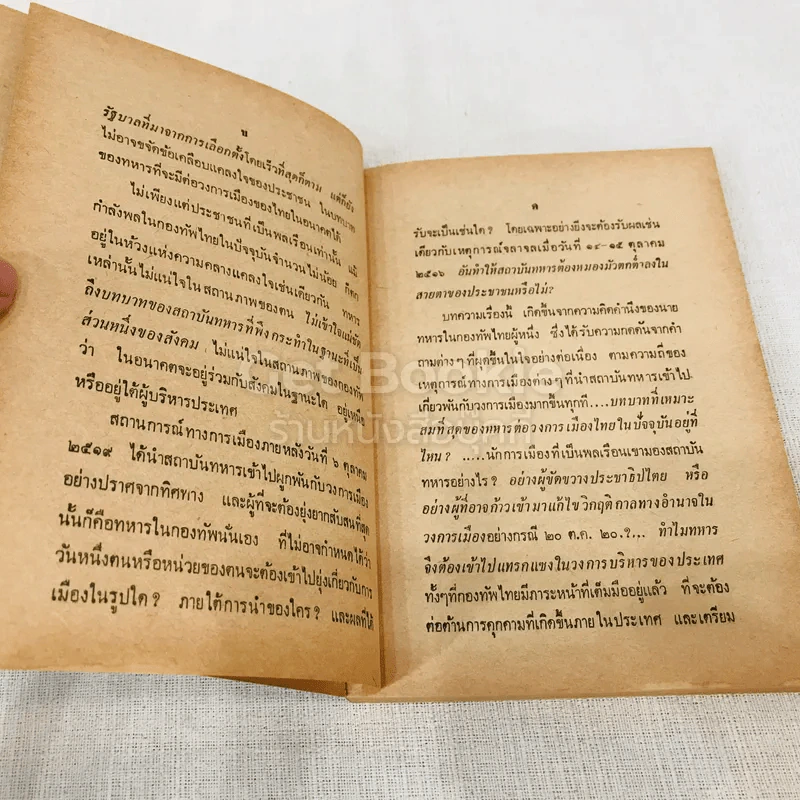 ข
รัฐบาลที่มาจากการเลือกตั้งโดยเร็วที่สุดก็ตาม แต่ก็ยัง
ไม่อาจขจัดข้อเคลือบแคลงใจของประชาชน ในบทบาท
ของทหารที่จะมีต่อวงการเมืองของไทยในอนาคตได้
ไม่เพียงแต่ประชาชนที่เป็นพลเรือนเท่านั้น แม้
กำลังพลในกองทัพไทยในปัจจุบันจำนวนไม่น้อย ก็ตก
อยู่ในห้วงแห่งความคลางแคลงใจเช่นเดียวกัน ทหาร
เหล่านั้นไม่แน่ใจใน สถานภาพของตน ไม่เข้าใจแน่ชัด
ถึงบทบาทของสถาบันทหารที่พึงกระทำในฐานะที่เป็น
ส่วนหนึ่งของสังคม ไม่แน่ใจในสถานภาพของกองทัพ
ว่า ในอนาคตจะอยู่ร่วมกับสังคมในฐานะใด อยู่เหนือ
หรืออยู่ใต้ผู้บริหารประเทศ
สถานการณ์ทางการเมืองภายหลังวันที่ ๖ ตุลาคม
๒๕๑๙ ได้นำสถาบันทหารเข้าไปผูกพันกับวงการเมือง
อย่างปราศจากทิศทาง และผู้ที่จะต้องยุ่งยากสับสนที่สุด
นั้นก็คือทหารในกองทัพนั่นเอง ที่ไม่อาจกำหนดได้ว่า
วันหนึ่งตนหรือหน่วยของตนจะต้องเข้าไปยุ่งเกี่ยวกับการ
เมืองในรูปใด ? ภายใต้การนำของใคร ? และผลที่ได้
ค
รับจะเป็นเช่นใด ? โดยเฉพาะอย่างยิ่งจะต้องรับผลเช่น
เดียวกับเหตุการณ์จลาจลเมื่อวันที่ ๑๔-๑๕ ตุลาคม
๒๕๑๖ อันทำให้สถาบันทหารต้องหมองมัวตกต่ำลงใน
สายตาของประชาชนหรือไม่?
บทความเรื่องนี้ เกิดขึ้นจากความคิดคำนึงของนาย
ทหารในกองทัพไทยผู้หนึ่ง ซึ่งได้รับความกดดันจากคำ
ถามต่างๆ ที่ผุดขึ้นในใจอย่างต่อเนื่อง ตามความถี่ของ
เหตุการณ์ทางการเมืองต่างๆ ที่นำสถาบันทหารเข้าไป
เกี่ยวพันกับวงการเมืองมากขึ้นทุกที.....บทบาทที่เหมาะ
สมที่สุดของทหารต่อวงการเมืองไทยในปัจจุบันอยู่ที่
ไหน ? .....นักการเมืองที่เป็นพลเรือนเขามองสถาบัน
ทหารอย่างไร ? อย่างผู้ขัดขวางประชาธิปไตย หรือ
อย่างผู้ที่อาจก้าวเข้ามาแก้ไขวิกฤติกาลทางอำนาจใน
วงการเมืองอย่างกรณี ๒๐ ต.ค. ๒๐.?... ทำไมทหาร
จึงต้องเข้าไปแทรกแซงในวงการบริหารของประเทศ
ทั้งๆที่กองทัพไทยมีภาระหน้าที่เต็มมืออยู่แล้ว ที่จะต้อง
ต่อต้านการคุกคามที่เกิดขึ้นภายในประเทศ และเตรียม